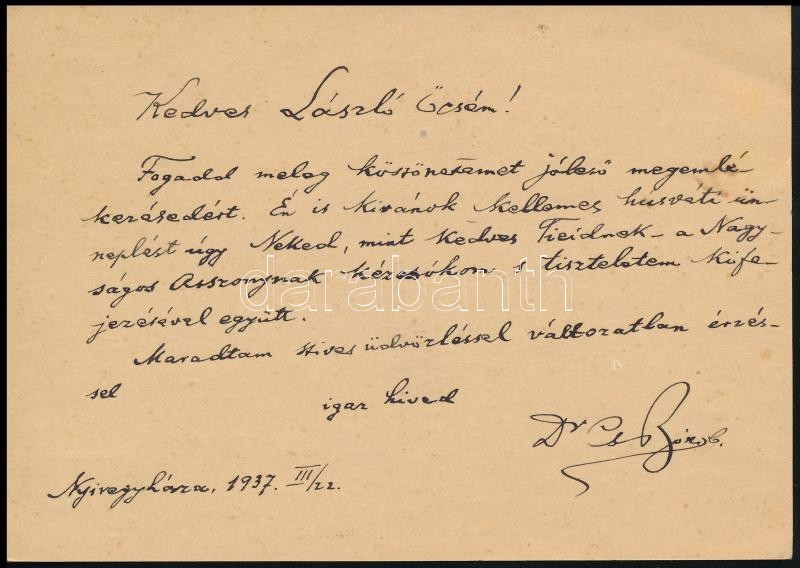 Kedves László Öcsém!
Fogadd meleg köszönetemet jóleső megemlé-
kezésedért. Én is kivánok kellemes húsvéti ün-
neplést úgy Neked, mint kedves Tieidnek – a Nagy-
ságos Asszonynak kézcsókom s tiszteletem kife-
jezésével együtt.
Maradtam szives üdvözléssel változatlan érzés-
sel
igaz hived
Dr Cs
Nyiregyháza, 1937. III/22.
darabanth